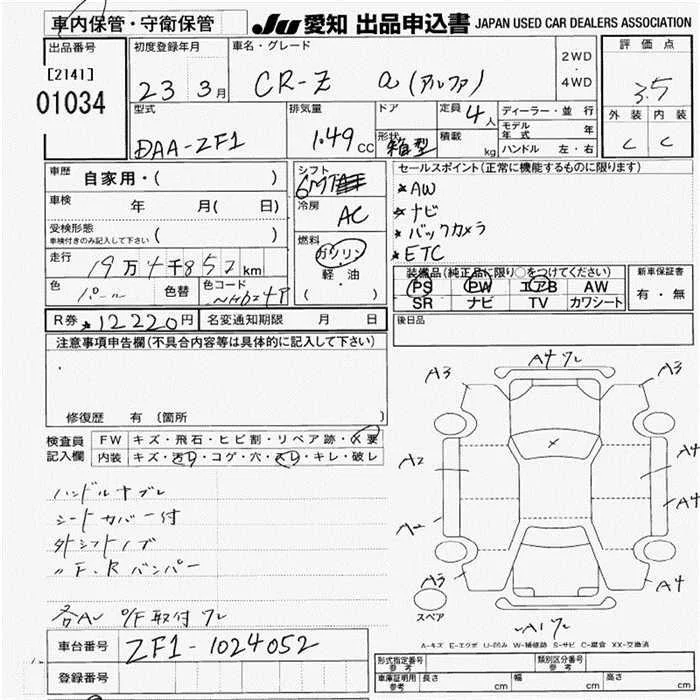 車内保管・守衛保管
JU 愛知 出品申込書 JAPAN USED CAR DEALERS ASSOCIATION
出品番号
[2141]
01034
初度登録年月
23 3月
車名・グレード
CR-Z α(アルファ)
2WD
・
4WD
評価点
3.5
外装 内装
C C
型式
DAA-ZF1
排気量
1.49 CC
ドア
形状
箱型
定員 4人
積載 kg
ディーラー・並行
モデル年式 年
ハンドル 左・右
車歴
自家用・( )
車検 年 月( 日)
受検形態
車検付きのみ記入して下さい ( )
走行
19万4千852km
色
パール
色替
色コード
シフト
6MT
冷房
AC
燃料
ガソリン
軽・油
( )
セールスポイント(正常に機能するものに限ります)
*AW
*ナビ
*バックカメラ
*ETC
装備品(純正品に限り○をつけてください)
PS PW エアB AW
SR ナビ TV カワシート
新車保証書
有・無
後日品
R券 *12220円
名変通知期限 月 日
注意事項申告欄(不具合内容等は具体的に記入して下さい)
修復歴 有 〔箇所 〕
検査員記入欄
FW キズ・飛石・ヒビ割・リペア跡・X要
内装 キズ・汚れ・コゲ・穴・スレ・キレ・破レ
ハンドルすブレ
シートカバー付
外シフトノブ
〃F.Rバンパー
各AW O/F取付ワレ
車台番号 ZF1-1024052
登録番号
A3 A4ワレ A3
X
A2 A4
A2 A4
A3 A4
スペア
A1ワレ
A-キズ E-エクボ U-凹み W-補修跡 S-サビ C-腐食 XX-交換済
形式指定番号
参考
類別区分番号
参考
車庫証明用
参考
長さ cm 幅 cm 高さ cm